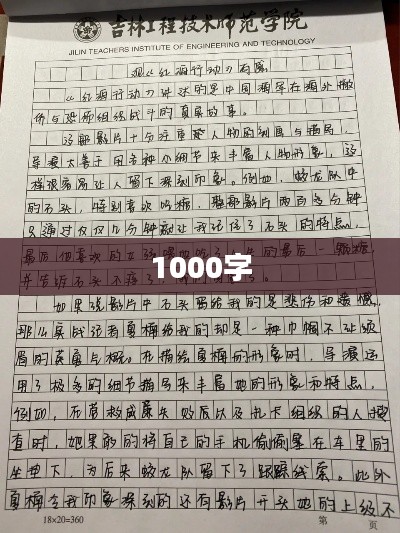 吉林工程技术师范学院
JILIN TEACHERS INSTITUTE OF ENGINEERING AND TECHNOLOGY
观《红海行动》有感
《红海行动》讲述的是中国海军在海外撤
侨与恐怖组织战斗的真实故事。
这部影片十分注重人物的刻画与描写,
导演太善于用各种小细节来丰富人物形象,这
样很容易让人留下深刻印象。例如,蛟龙队中
的石头,特别喜欢吃糖,整部影片两百多分钟
只通过仅仅几分钟就让我记住了石头的特点,
最后
1000字
如果说影片中石头留给我的是悲伤和遗憾,
那么实战记者夏楠给我的却是一种巾帼不让须
眉的英雄气概。在描绘夏楠的形象时,导演运
用了极多的细节描写来丰富她的形象和特点,
例如,在营救威廉失败后以及扎卡组织的人搜
查时,她果敢的将自己的手机偷偷塞在车里的
坐垫下,为后来蛟龙队留下了跟踪线索。此外
夏楠令我印象深刻的还有影片开头她的上级不
18×20=360
第 页